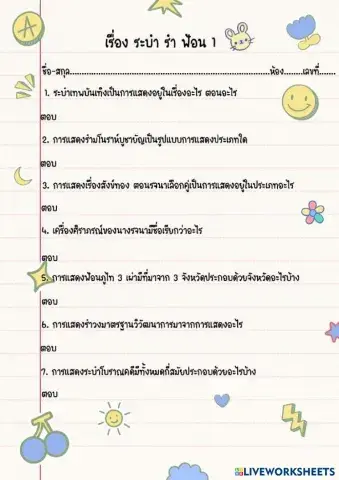 เรื่อง ระบำ รำ ฟ้อน 1
ชื่อ-สกุล......................................................................ห้อง........เลขที่........
1. ระบำเทพบันเทิงเป็นการแสดงอยู่ในเรื่องอะไร ตอนอะไร
ตอบ
2. การแสดงรำมโนราห์บูชายัญเป็นรูปแบบการแสดงประเภทใด
ตอบ
3. การแสดงเรื่องสังข์ทอง ตอนรจนาเลือกคู่เป็นการแสดงอยู่ในประเภทอะไร
ตอบ
4. เครื่องศิราภรณ์ของนางรจนามีชื่อเรียกว่าอะไร
ตอบ
5. การแสดงฟ้อนภูไท 3 เผ่ามีที่มาจาก 3 จังหวัดประกอบด้วยจังหวัดอะไรบ้าง
ตอบ
6. การแสดงรำวงมาตรฐานวิวัฒนาการมาจากการแสดงอะไร
ตอบ
7. การแสดงระบำโบราณคดีมีทั้งหมดกี่สมัยประกอบด้วยอะไรบ้าง
ตอบ
LIVEWORKSHEETS